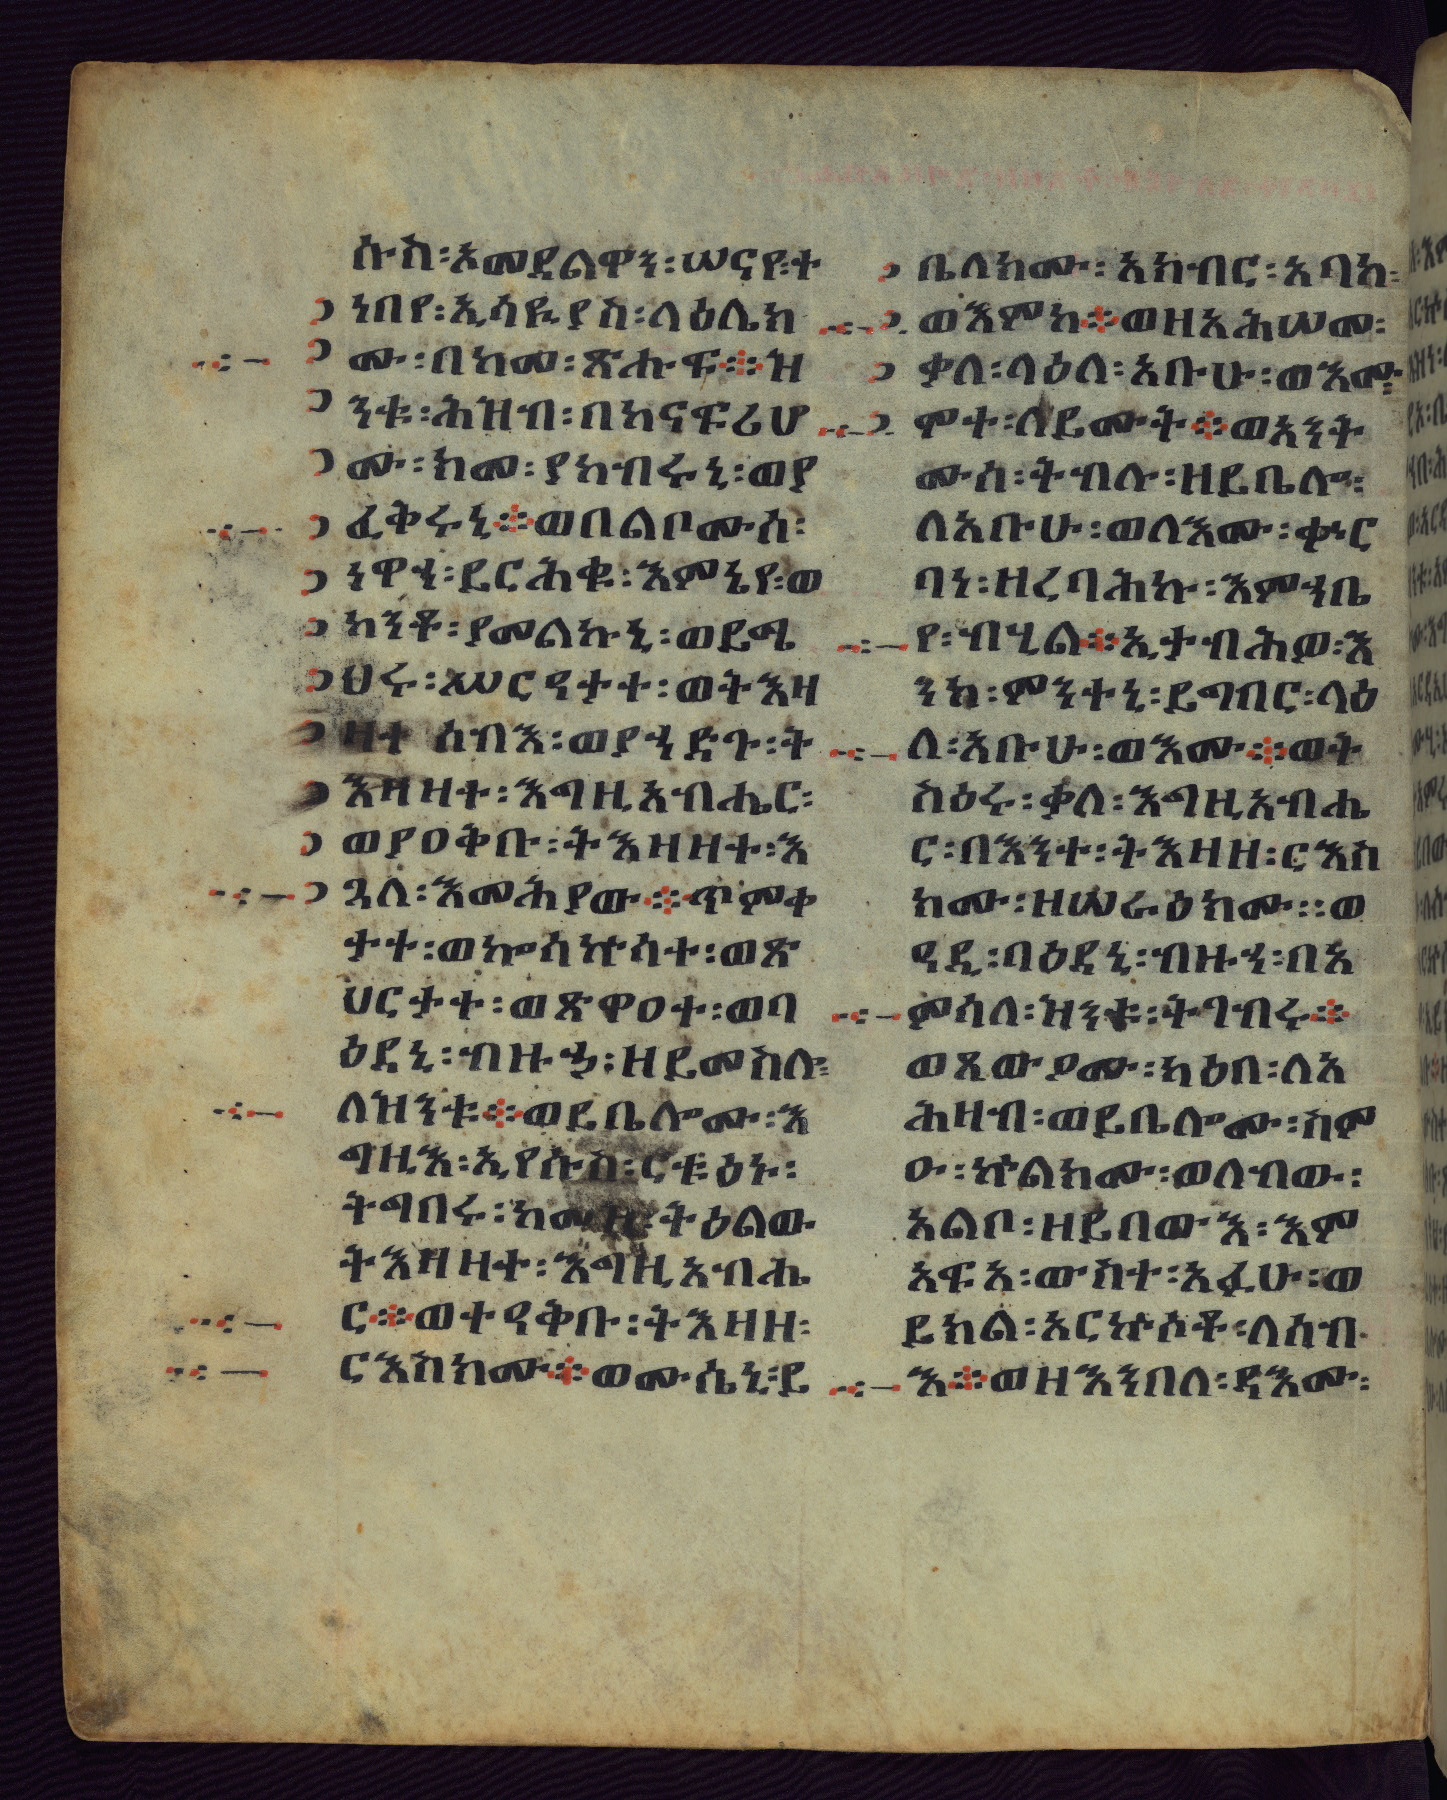 ሱስ፡እመደልዋን፡ሠናየ፡ተ
ነበየ፡ኢሳይያስ፡ላዕሌክ
ሙ፡በከመ፡ጽሑፍ፨ዝ
ንቱ፡ሕዝብ፡በከናፍሪሆ
ሙ፡ከመ፡ያከብሩኒ፡ወያ
ፈቅሩኒ፨ወበልቦሙሰ፡
ነዋኃ፡ይርሕቁ፡እምኔየ፡ወ
ከንቶ፡ያመልኩኒ፡ወይሜ
ህሩ፡ሥርዓተተ፡ወትእዛ
ዛተ ሰብእ፡ወያኃድጉ፡ት
እዛዛተ፡እግዚአብሔር፡
ወያዐቅቡ፡ትእዛዛተ፡እ
ጓለ፡እመሕያው፨ጥምቀ
ታተ፡ወኰስኵሳተ፡ወጽ
ሀርታተ፡ወጽዋዐተ፡ወባ
ዕደኒ፡ብዙኃ፡ዘይመስሉ፡
ለዝንቱ፨ወይቤሎሙ፡እ
ግዚእ፡ኢየሱስ፡ርቱዕኑ፡
ትግበሩ፡ከመዝ፡ትዕልው
ትእዛዛተ፡እግዚአብሔ
ር፨ወተዓቅቡ፡ትእዛዘ፡
ርእስክሙ፨ወሙሴኒ፡ይ
ቤለክሙ፡አክብር፡አባከ፡
ወእምከ፨ወዘአሕሠመ፡
ቃለ፡ላዕለ፡አቡሁ፡ወእሙ፡
ሞተ፡ለይሙት፨ወአንት
ሙሰ፡ትብሉ፡ዘይቤሎ፡
ለአቡሁ፡ወለእሙ፡ቍር
ባነ፡ዘረባሕኩ፡እምኀቤ
የ፡ብሂል፨ኢታብሕዎ፡እ
ንከ፡ምንተኒ፡ይግበር፡ላዕ
ለ፡አቡሁ፡ወእሙ፨ወት
ስዕሩ፡ቃለ፡እግዚአብሔ
ር፡በእንተ፡ትእዛዘ፡ርእስ
ክሙ፡ዘሠራዕክሙ፡፡ወ
ዓዲ፡ባዕደኒ፡ብዙኀ፡በአ
ምሳለ፡ዝንቱ፡ትገብሩ፨
ወጸውዖሙ፡ካዕበ፡ለአ
ሕዛብ፡ወይቤሎሙ፡ስም
ዑ፡ኵልክሙ፡ወለብው፡
አልቦ፡ዘይበውእ፡እም
አፍአ፡ውስተ፡አፈሁ፡ወ
ይክል፡አርኵሶቶ፡ለሰብ
እ፨ወዘእንበለ፡ዳእሙ፡